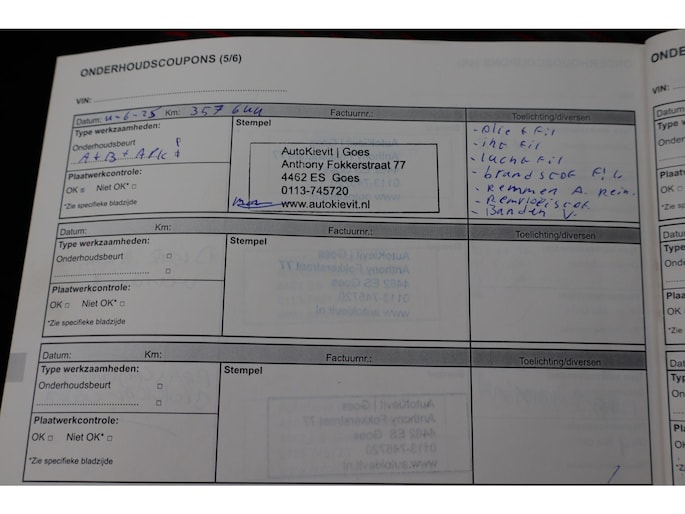 ONDERHOUDSCOUPONS (5/6)
VIN:
Datum: 4-6-25 Km: 357644 Factuurnr.: Toelichting/diversen
Type werkzaamheden:
Onderhoudsbeurt
A+B+APK
Plaatwerkcontrole:
OK Niet OK*
*Zie specifieke bladzijde
Stempel
AutoKievit | Goes
Anthony Fokkerstraat 77
4462 ES Goes
0113-745720
www.autokievit.nl
- olie + fil
- int fil
- lucht fil
- brandstof fil
- Remmen A. Rein.
- Remvloeistof
- Banden V.
Datum: Km: Factuurnr.: Toelichting/diversen
Type werkzaamheden:
Onderhoudsbeurt
Plaatwerkcontrole:
OK Niet OK*
*Zie specifieke bladzijde
Stempel
Datum: Km: Factuurnr.: Toelichting/diversen
Type werkzaamheden:
Onderhoudsbeurt
Plaatwerkcontrole:
OK Niet OK*
*Zie specifieke bladzijde
Stempel